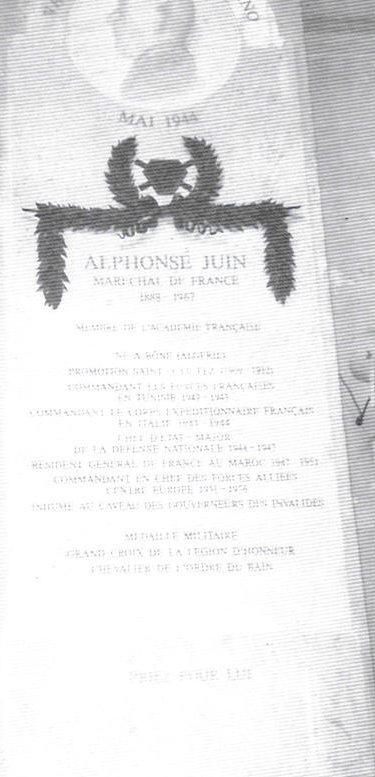 MAI 1944
ALPHONSE JUIN
MARECHAL DE FRANCE
1888 - 1967
MEMBRE DE L'ACADEMIE FRANÇAISE
NE A BÔNE (ALGERIE)
PROMOTION SAINT-CYR FEZ 1909 - 1912
COMMANDANT LES FORCES FRANÇAISES
EN TUNISIE 1942 - 1943
COMMANDANT LE CORPS EXPEDITIONNAIRE FRANÇAIS
EN ITALIE 1943 - 1944
CHEF D'ETAT-MAJOR
DE LA DEFENSE NATIONALE 1944 - 1947
RESIDENT GENERAL DE FRANCE AU MAROC 1947 - 1951
COMMANDANT EN CHEF DES FORCES ALLIEES
CENTRE EUROPE 1951 - 1956
INHUME AU CAVEAU DES GOUVERNEURS DES INVALIDES
MEDAILLE MILITAIRE
GRAND CROIX DE LA LEGION D'HONNEUR
CHEVALIER DE L'ORDRE DU BAIN
PRIEZ POUR LUI